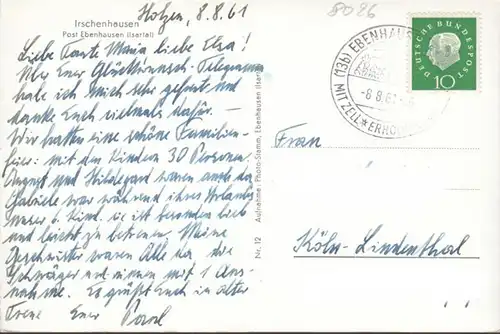 Irschenhausen
Post Ebenhausen (Isartal)
Holzen, 8.8.61
8026
Liebe Tante Maria liebe Elsa!
Über Euer Glückwunsch-Telegramm
habe ich mich sehr gefreut und
danke Euch vielmals dafür. —
Wir hatten eine schöne Familien-
feier: mit den Kindern 30 Personen.
August und Hildegard waren auch da
Gabriele war während ihres Urlaubs
unser 6. Kind. sie ist besonders lieb
und leicht zu betreuen. Meine
Geschwister waren Alle da, die
Schwäger und -innen mit 1 Aus-
nahme. Es grüßt Euch in alter
Treue Euer Paul
Nr. 12 Aufnahme: Photo-Stamm, Ebenhausen (Isartal)
(13b) EBENHAUS
-8.8.61
MIT ZELL * ERHO
DEUTSCHE BUNDESPOST
10
Frau
Köln-Lindenthal